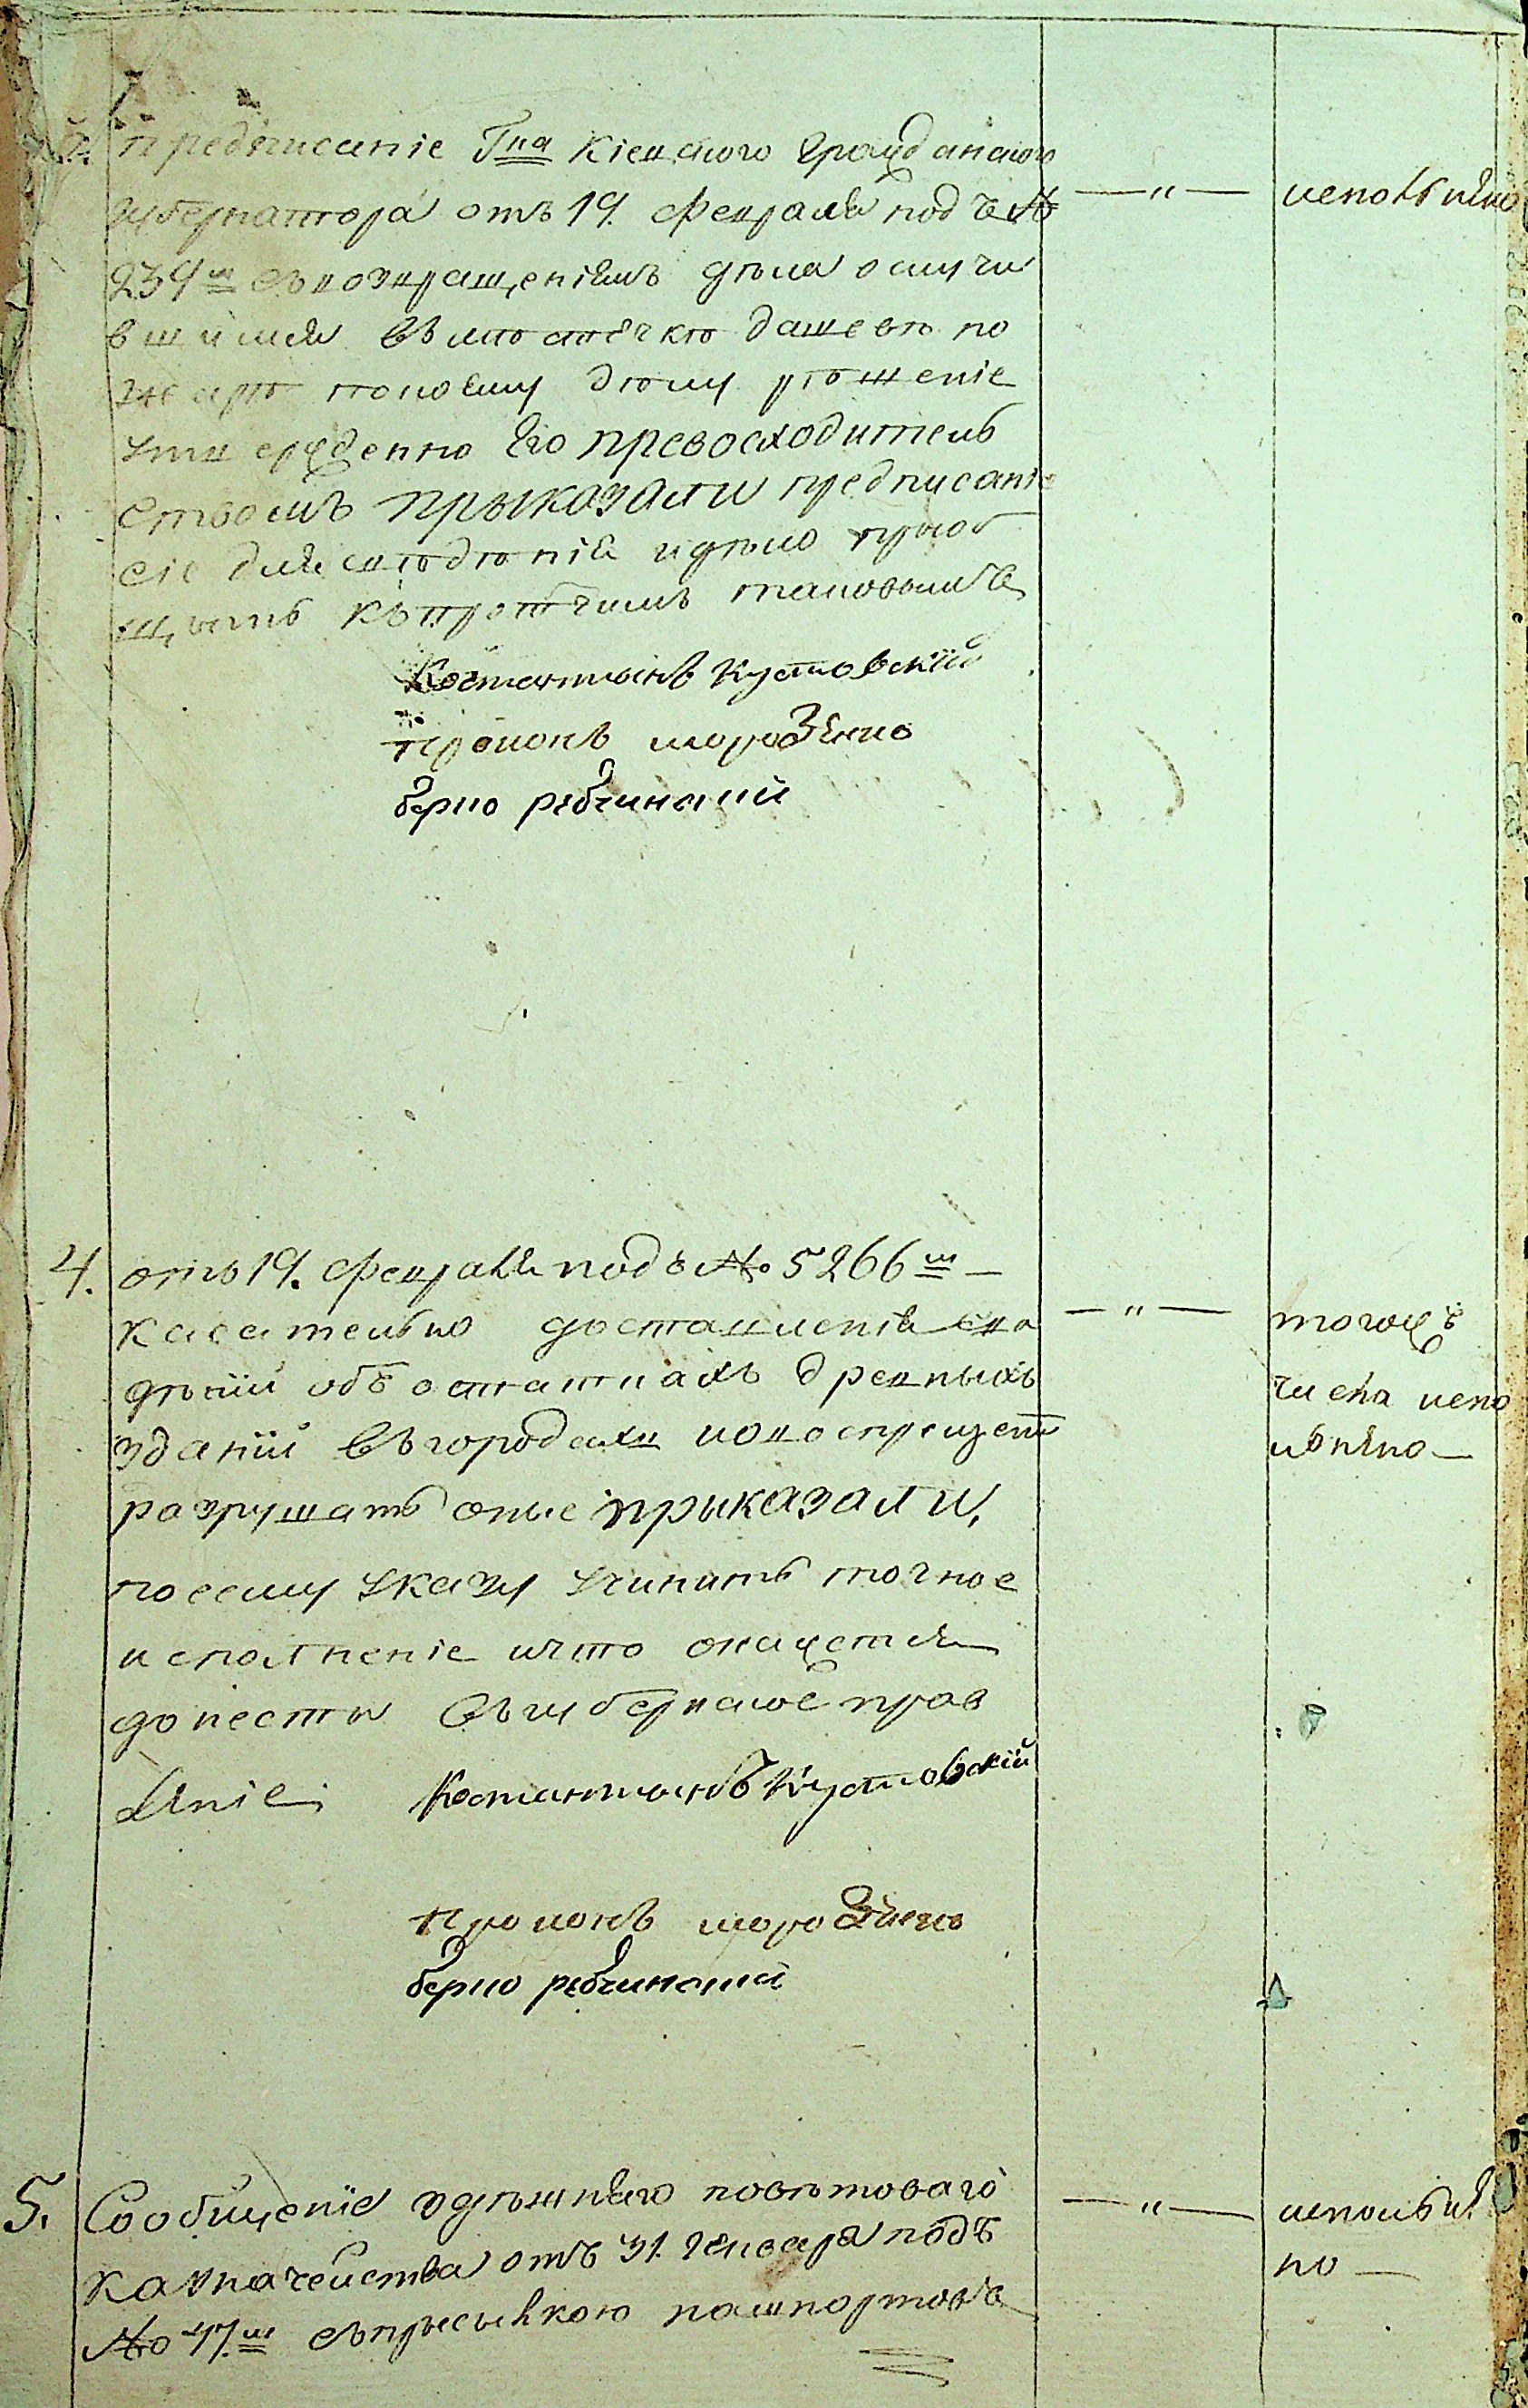 Предписаніе Гна Кіевского Гражданского
Губернатора отъ 19. февраля под №
239м съ возвращеніемъ дѣла о случи
вшимся въ местечкѣ Дашевѣ по
жарѣ покоему делу рѣшеніе
утверждено Его превосходитель
ствомъ Прыказали предписаніе
сіе для сведенія и дѣло прыоб
щить къ протчимъ таковымъ
Костантынъ Кутковскій
Прокопъ морозенко
— " — исполнено
4. отъ 19. февраля подъ № 5266м —
касательно доставленія све
дѣній объ остаткахъ древныхъ
зданій въ городахъ и о воспрещеніи
разрушать оные прыказали,
по сему указу учинить точное
исполненіе и что окажется
донесты въ губернское прав
леніе
Костантынъ Кутковскій
Прокопъ морозенко
— " — тогожъ
числа испо
лнено —
5. Сообщеніе здѣшняго поветоваго
казначейства отъ 31. Генваря подъ
№ 47.м съ прысылкою пашпортовъ
— " — исполне
но —